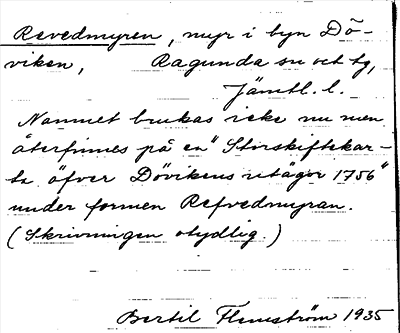 Revedmyren, myr i byn Dö-
viken, Ragunda sn och tg,
Jämtl. l.
Namnet brukas icke nu men
återfinnes på en "Storskifteskar-
ta öfver Dövikens utägor 1756"
under formen Refvedmyran.
(Skrivningen otydlig.)
Bertil Flemström 1935